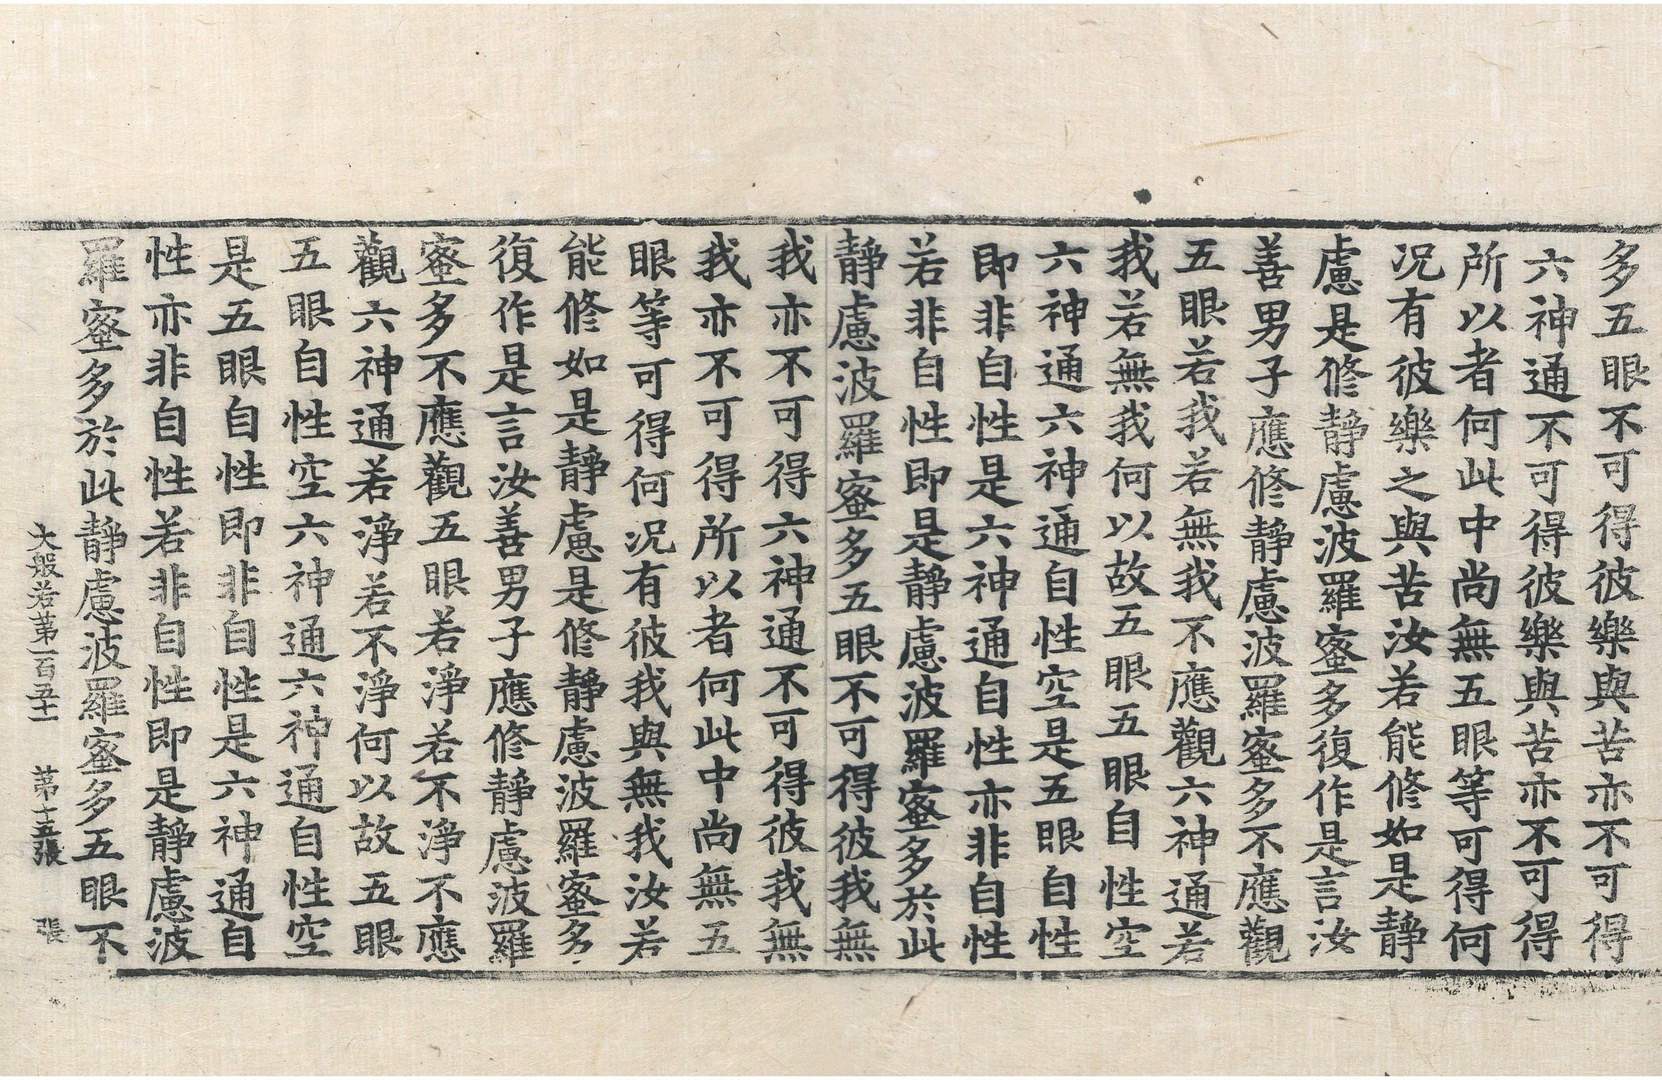 多五眼不可得彼樂與苦亦不可得
六神通不可得彼樂與苦亦不可得
所以者何此中尚無五眼等可得何
况有彼樂之與苦汝若能修如是靜
慮是修靜慮波羅蜜多復作是言汝
善男子應修靜慮波羅蜜多不應觀
五眼若我若無我不應觀六神通若
我若無我何以故五眼五眼自性空
六神通六神通自性空是五眼自性
即非自性是六神通自性亦非自性
若非自性即是靜慮波羅蜜多於此
靜慮波羅蜜多五眼不可得彼我無
我亦不可得六神通不可得彼我無
我亦不可得所以者何此中尚無五
眼等可得何况有彼我與無我汝若
能修如是靜慮是修靜慮波羅蜜多
復作是言汝善男子應修靜慮波羅
蜜多不應觀五眼若淨若不淨不應
觀六神通若淨若不淨何以故五眼
五眼自性空六神通六神通自性空
是五眼自性即非自性是六神通自
性亦非自性若非自性即是靜慮波
羅蜜多於此靜慮波羅蜜多五眼不
大般若第一百五十一 第十五張 張